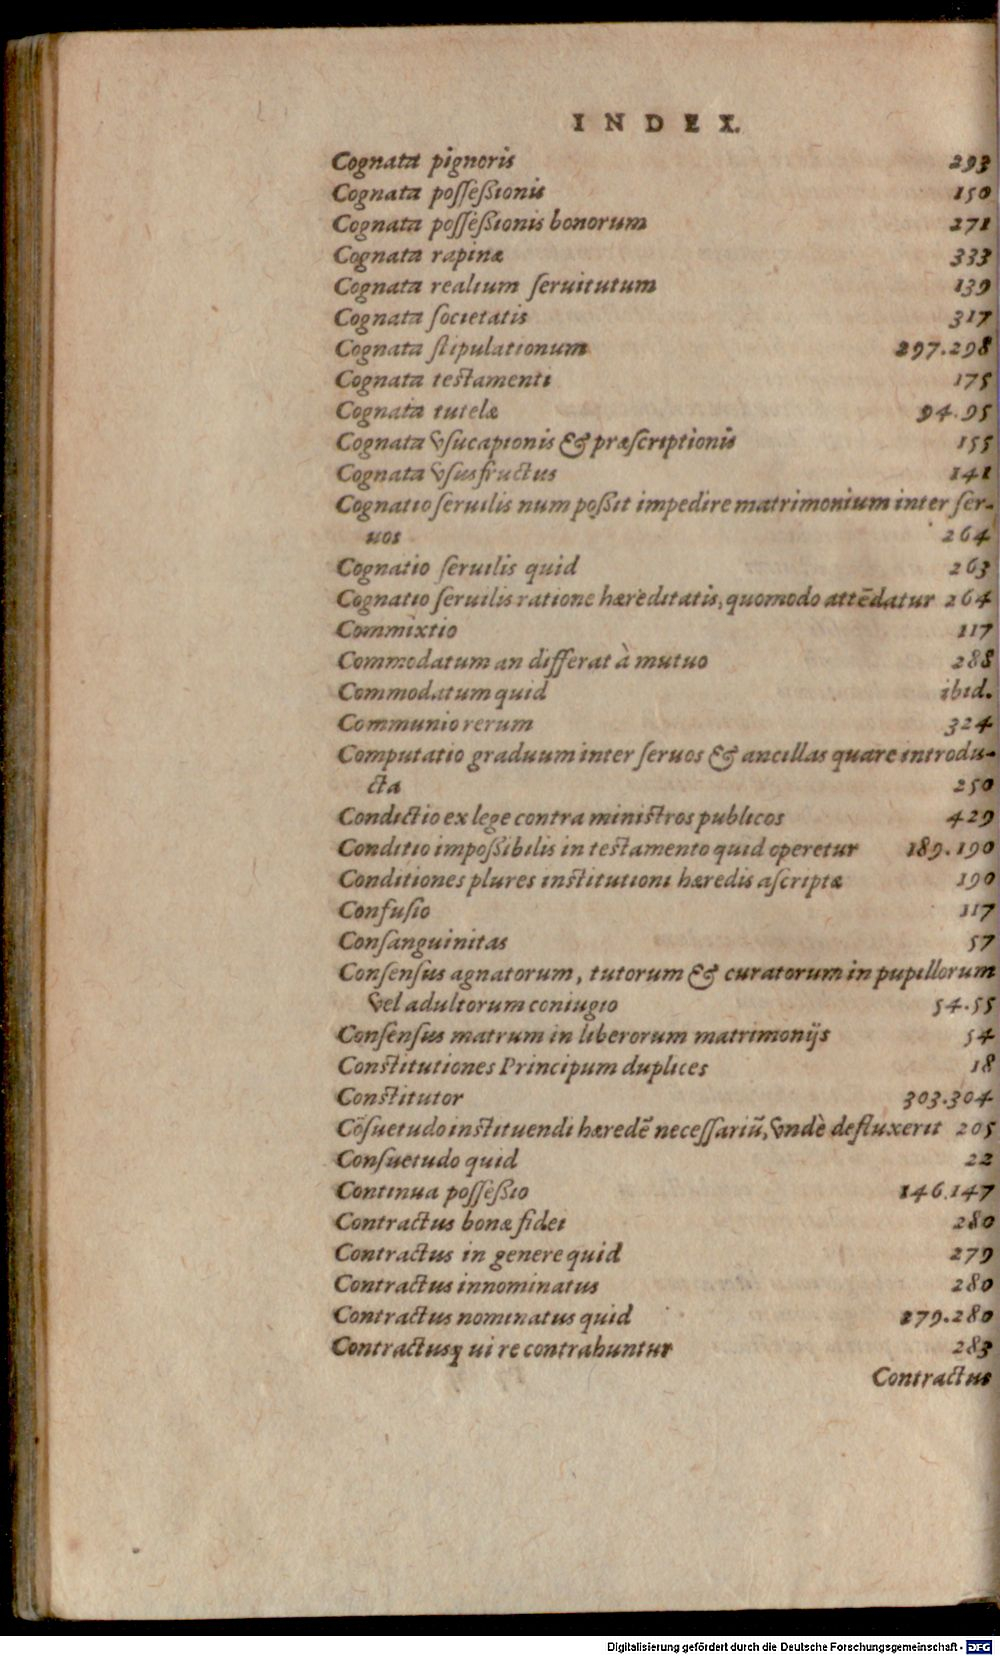 INDEX.
Cognata pignoris 293
Cognata poſſeßionis 150
Cognata poſſeßionis bonorum 271
Cognata rapinæ 333
Cognata realium ſeruitutum 139
Cognata ſocietatis 317
Cognata ſtipulationum 297.298
Cognata teſtamenti 175
Cognata tutelæ 94.95
Cognata vſucapionis & præſcriptionis 155
Cognata vſusfructus 141
Cognatio ſeruilis num poßit impedire matrimonium inter ſer-
uos 264
Cognatio ſeruilis quid 263
Cognatio ſeruilis ratione hæreditatis, quomodo attēdatur 264
Commixtio 117
Commodatum an differat à mutuo 288
Commodatum quid ibid.
Communio rerum 324
Computatio graduum inter ſeruos & ancillas quare introdu-
cta 250
Condictio ex lege contra miniſtros publicos 429
Conditio impoßibilis in teſtamento quid operetur 189.190
Conditiones plures inſtitutioni hæredis aſcriptæ 190
Confuſio 117
Conſanguinitas 57
Conſenſus agnatorum, tutorum & curatorum in pupillorum
vel adultorum coniugio 54.55
Conſenſus matrum in liberorum matrimonijs 54
Conſtitutiones Principum duplices 18
Conſtitutor 303.304
Cōſuetudo inſtituendi hæredē neceſſariũ, vndè defluxerit 205
Conſuetudo quid 22
Continua poſſeßio 146.147
Contractus bonæ fidei 280
Contractus in genere quid 279
Contractus innominatus 280
Contractus nominatus quid 279.280
Contractusq ui re contrahuntur 283
Contractus
Digitalisierung gefördert durch die Deutsche Forschungsgemeinschaft - DFG